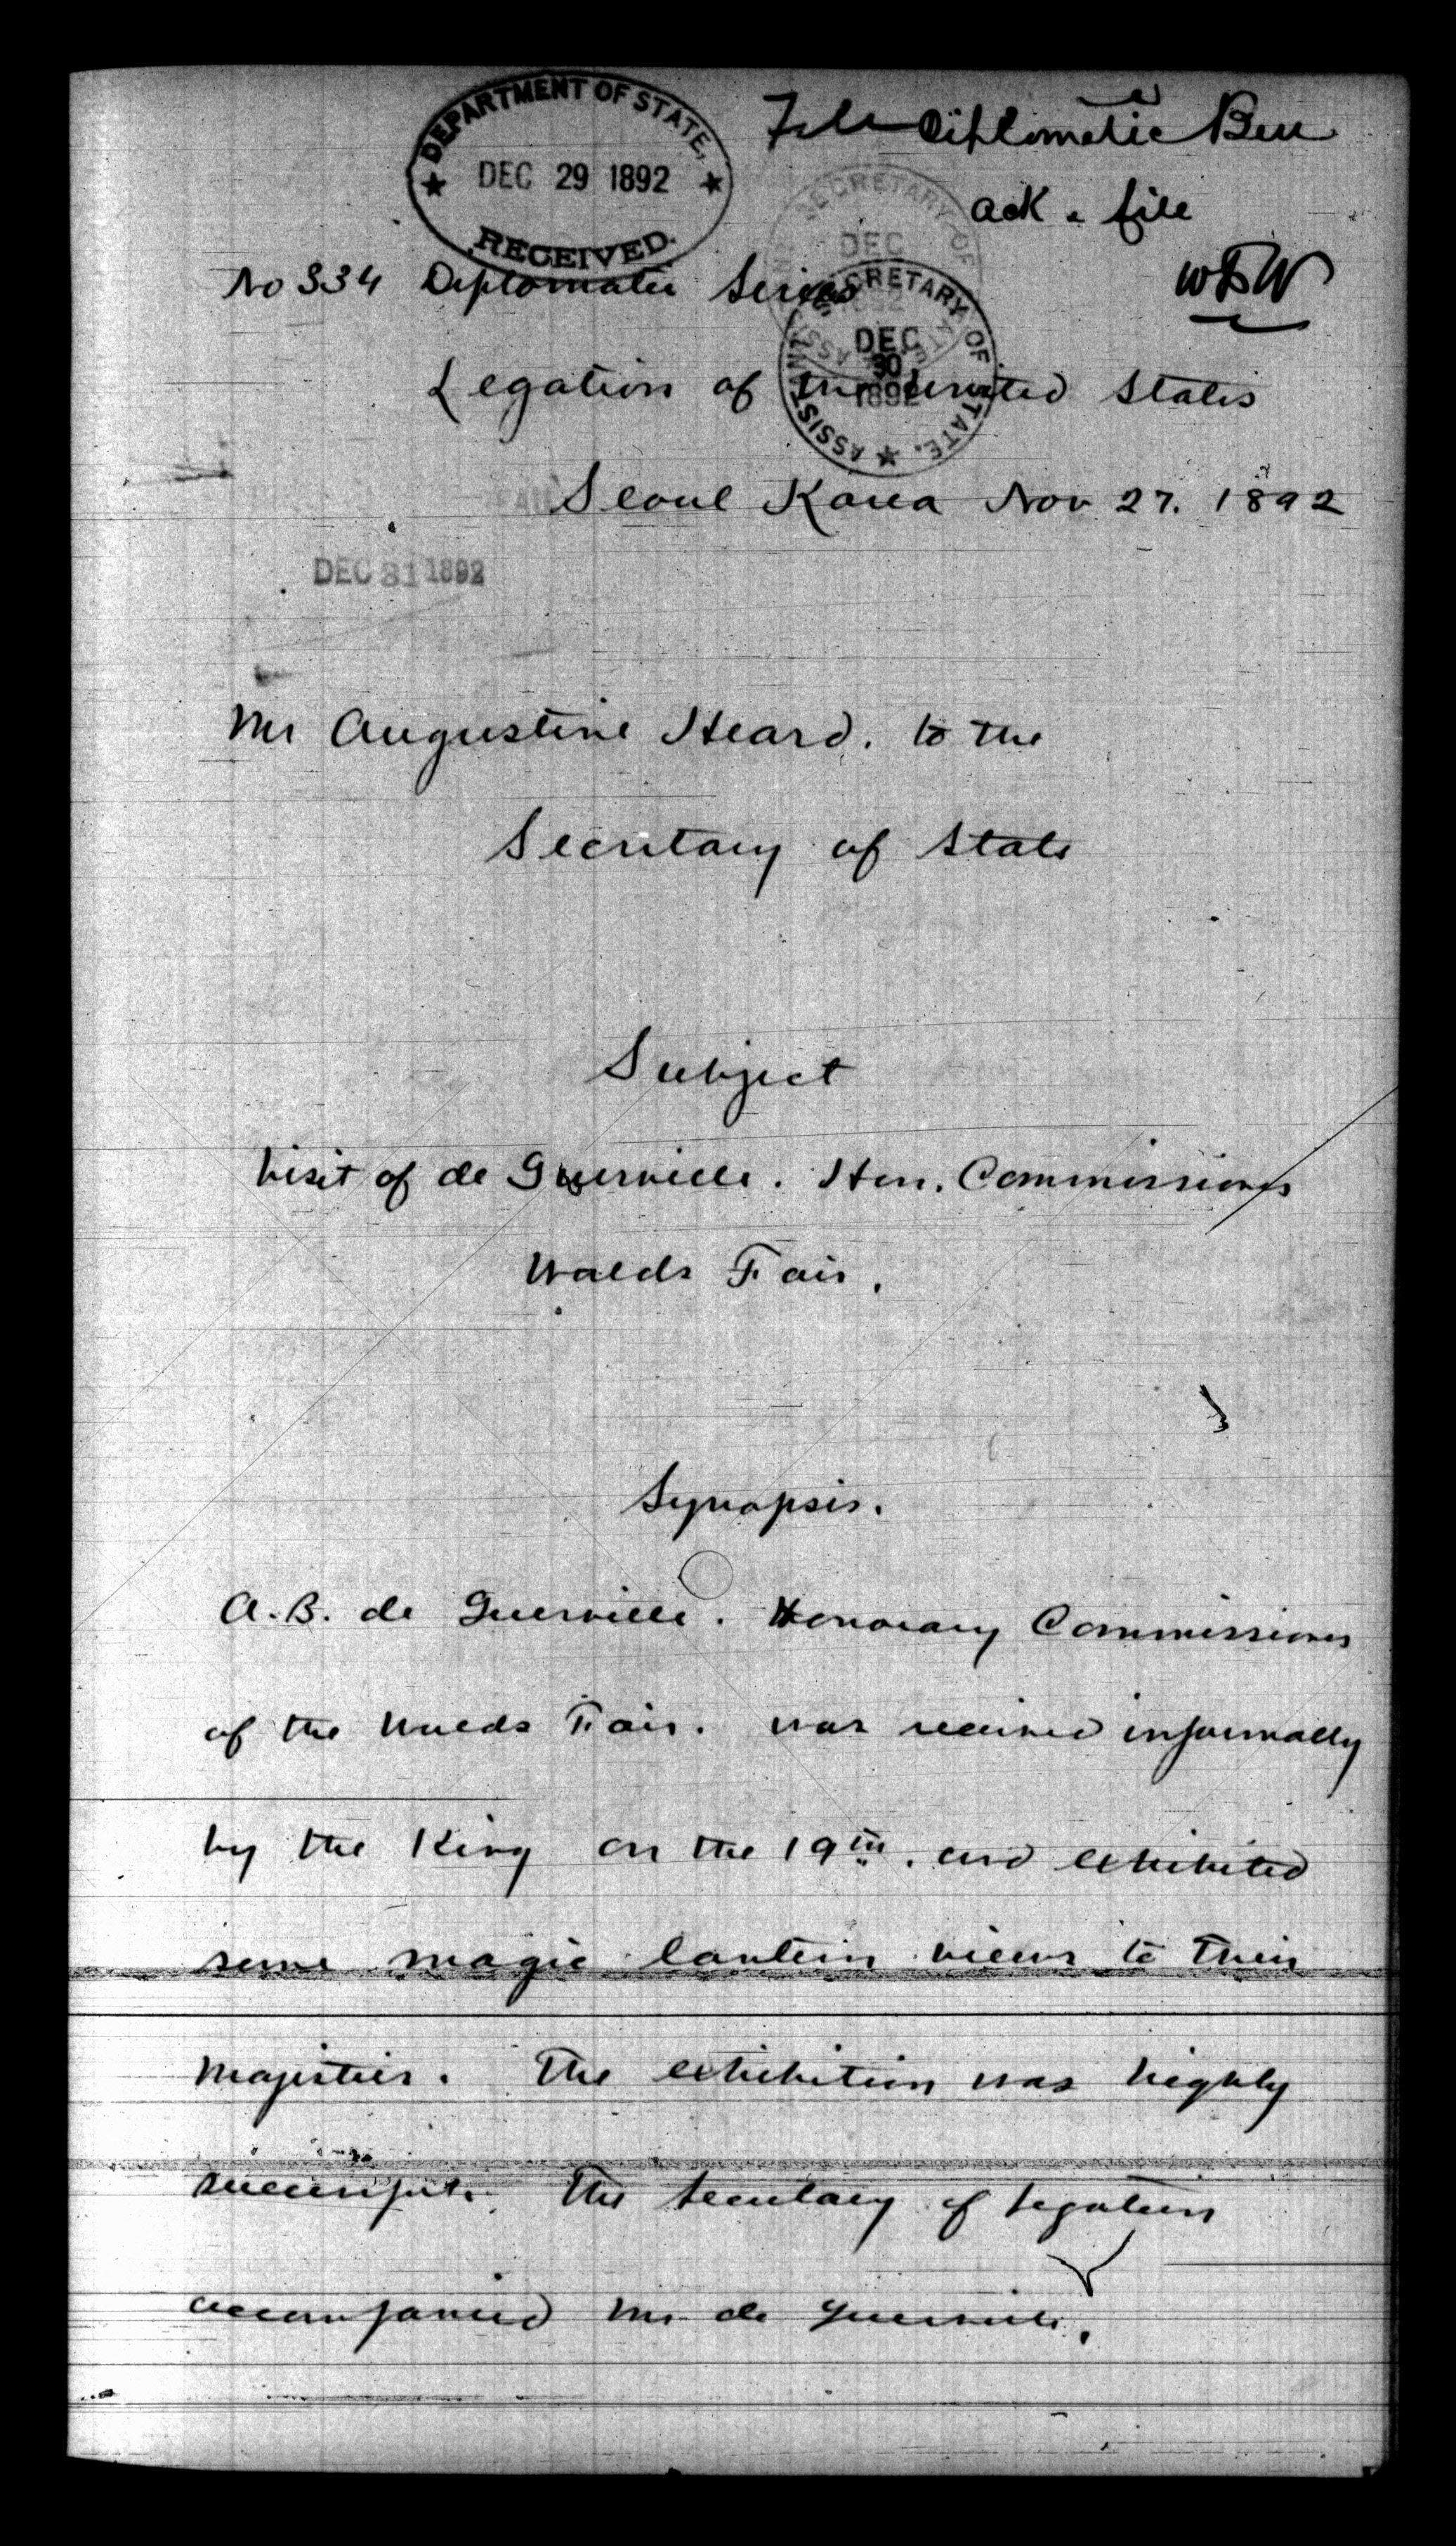 DEPARTMENT OF STATE,
DEC 29 1892
RECEIVED.
Diplomatic Bu
ack & file
WFW
SECRETARY OF
DEC
No 334 Diplomatic Series
ASSISTANT SECRETARY OF STATE.
DEC
30
1892
Legation of the United States
Seoul Korea Nov 27. 1892
DEC 31 1892
Mr Augustine Heard. to the
Secretary of State
Subject
Visit of de Guerville. Hon. Commissioner
Worlds Fair.
Synopsis.
A.B. de Guerville. Honorary Commissioner
of the Worlds Fair. was received informally
by the King on the 19th. and exhibited
some magic lantern views to their
Majesties. The exhibition was highly
successful. The Secretary of Legation
accompanied Mr de Guerville.